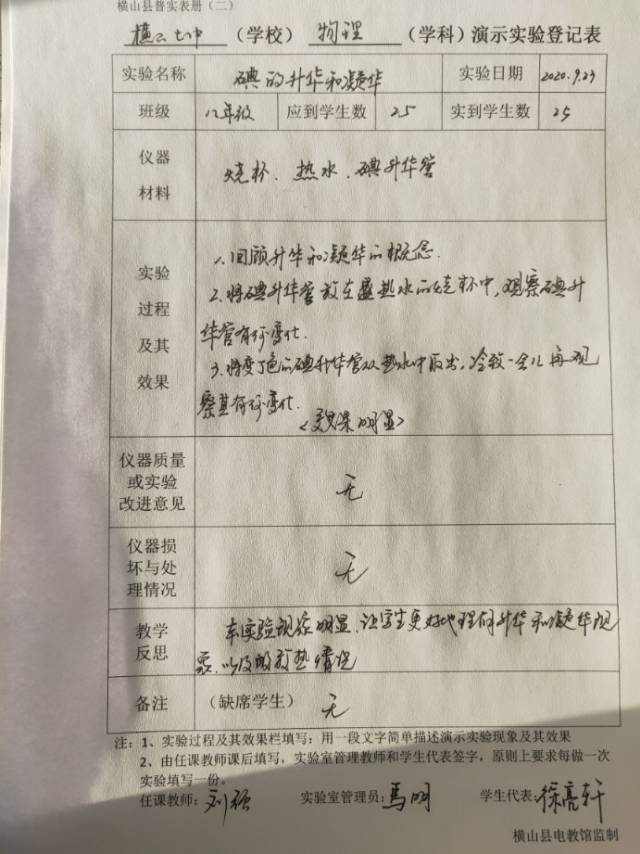 横山县普实表册（二）
横山七中（学校）物理（学科）演示实验登记表
实验名称 碘的升华和凝华 实验日期 2020.9.23
班级 八年级 应到学生数 25 实到学生数 25
仪器
材料
烧杯、热水、碘升华管
实验
过程
及其
效果
1.回顾升华和凝华的概念.
2.将碘升华管放在盛热水的烧杯中,观察碘升
华管有何变化.
3.将变了色的碘升华管从热水中取出,冷致一会儿再观
察其有何变化.
<效果明显>
仪器质量
或实验
改进意见
无
仪器损
坏与处
理情况
无
教学
反思
本实验现象明显,让学生更好地理解升华和凝华现
象,以及吸放热情况
备注 （缺席学生）无
注：1、实验过程及其效果栏填写：用一段文字简单描述演示实验现象及其效果
2、由任课教师课后填写，实验室管理教师和学生代表签字，原则上要求每做一次
实验填写一份。
任课教师：刘强 实验室管理员：马明 学生代表：徐亮轩
横山县电教馆监制